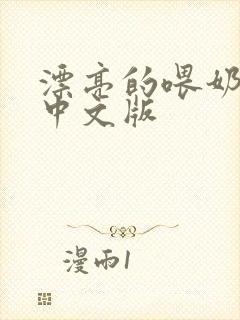 漂亮的喂奶
中文版
漫雨1